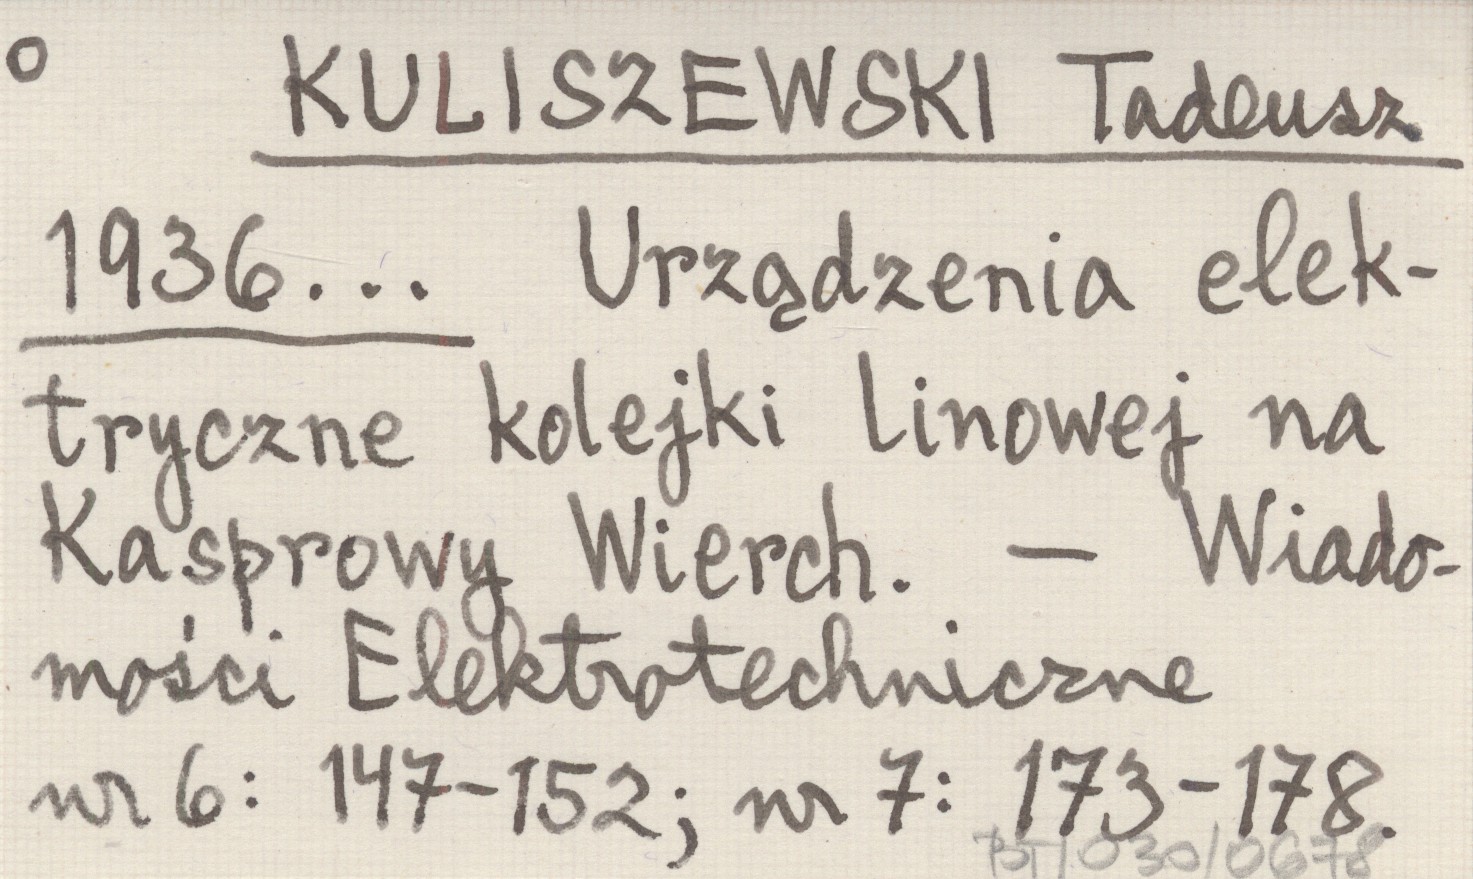 o KULISZEWSKI Tadeusz
1936... Urządzenia elek-
tryczne kolejki linowej na
Kasprowy Wierch. — Wiado-
mości Elektrotechniczne
nr 6: 147-152; nr 7: 173-178.
BT/030/0678